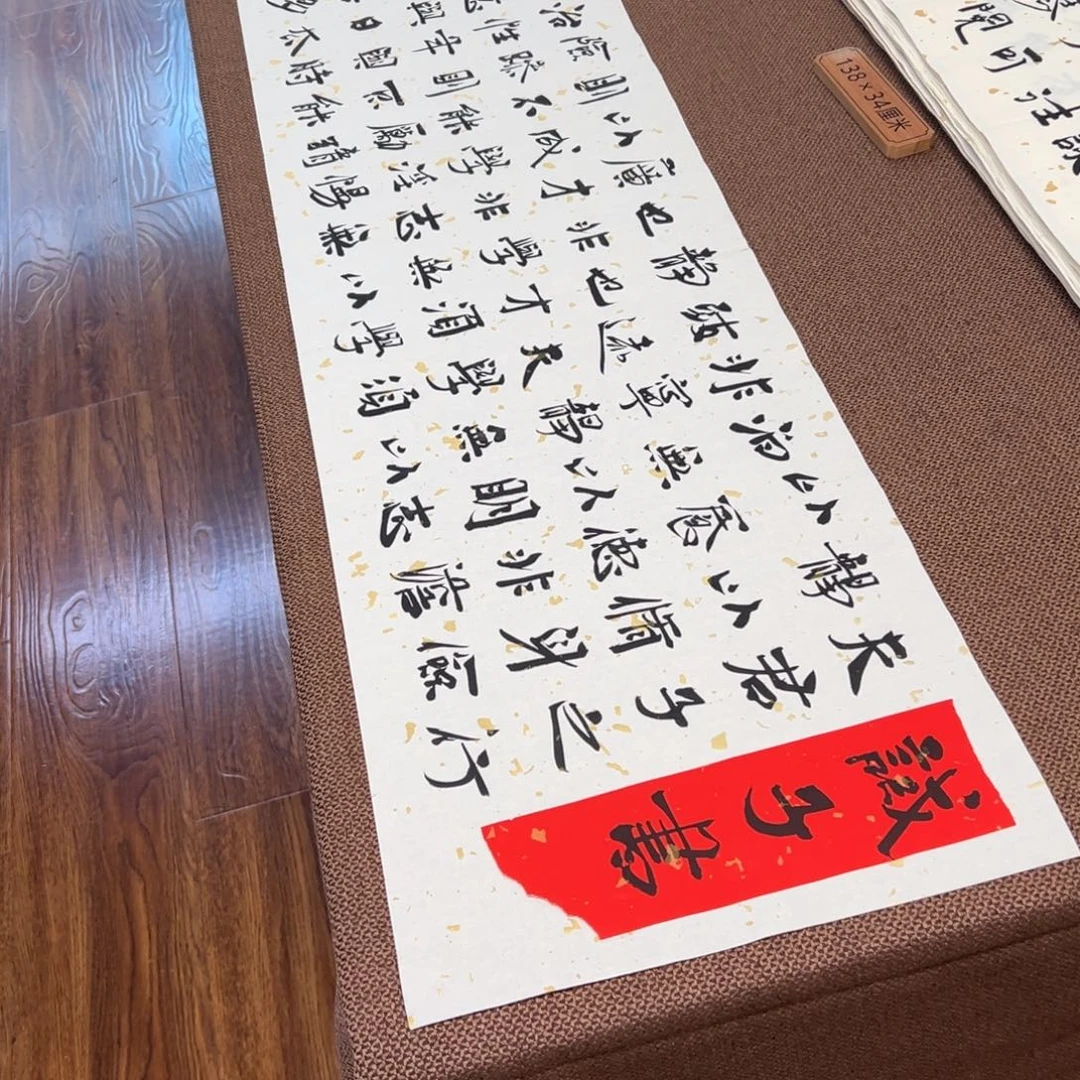 誡子書
夫君子之行
靜以脩身儉
以養德非澹
泊無以明志
非寧靜無以
致遠夫學須
靜也才須學
也非學無以
廣才非志無
以成學淫慢
則不能勵精
險躁則不能
治性年與時
與日去
138×34厘米